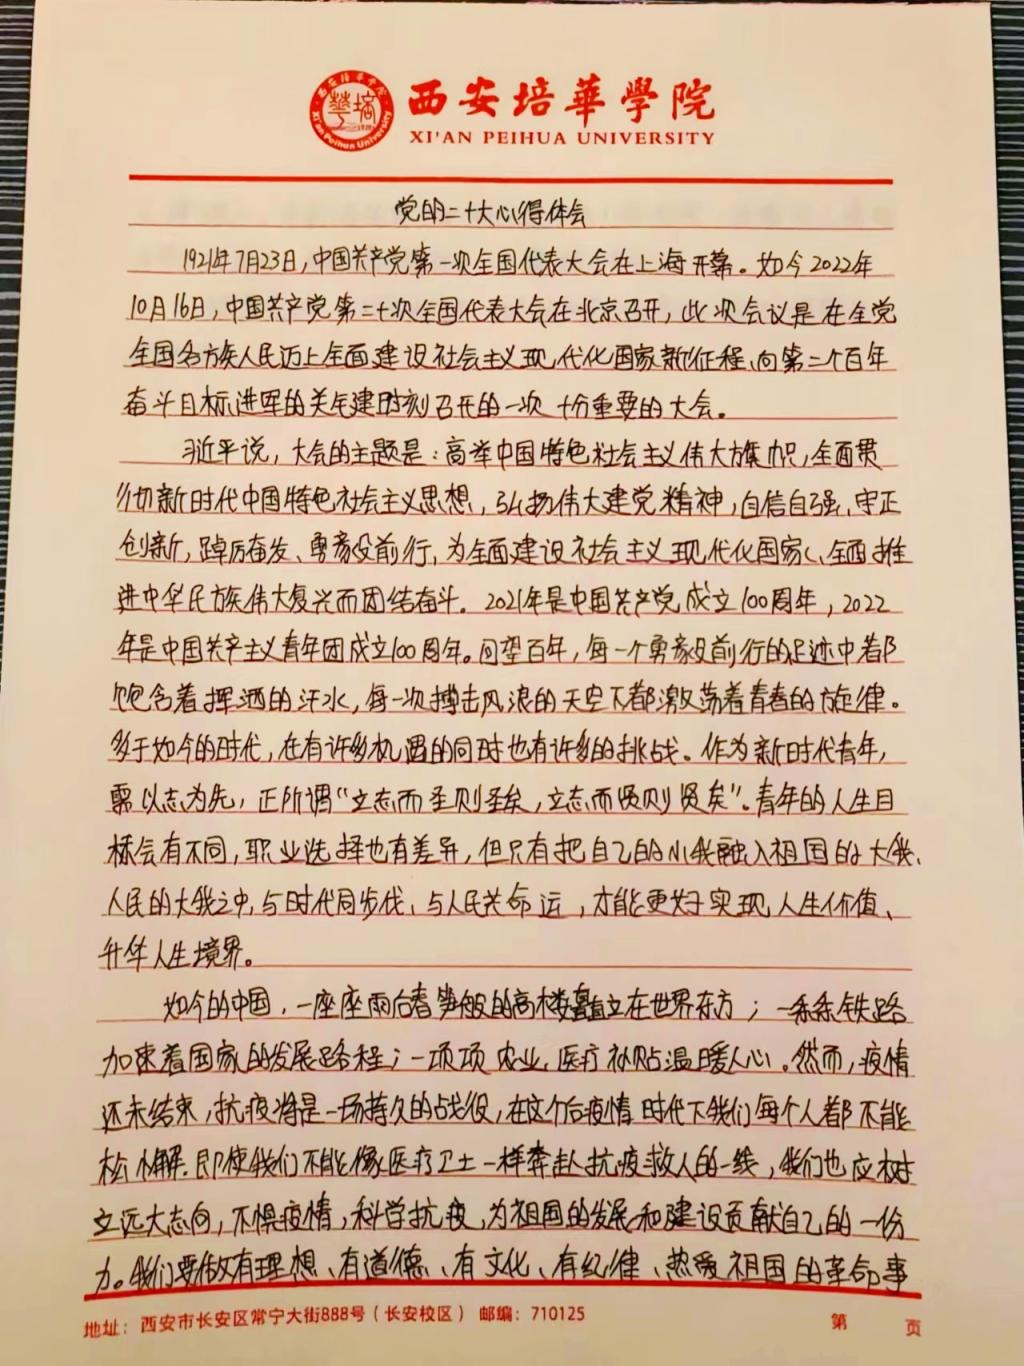 西安培華學院
XI'AN PEIHUA UNIVERSITY
党的二十大心得体会
1921年7月23日,中国共产党第一次全国代表大会在上海开幕。如今2022年
10月16日,中国共产党第二十次全国代表大会在北京召开,此次会议是在全党
全国各族人民迈上全面建设社会主义现代化国家新征程、向第二个百年
奋斗目标进军的关键时刻召开的一次十分重要的大会。
习近平说,大会的主题是:高举中国特色社会主义伟大旗帜,全面贯
彻新时代中国特色社会主义思想,弘扬伟大建党精神,自信自强、守正
创新,踔厉奋发、勇毅前行,为全面建设社会主义现代化国家、全面推
进中华民族伟大复兴而团结奋斗。2021年是中国共产党成立100周年,2022
年是中国共产主义青年团成立100周年。回望百年,每一个勇毅前行的足迹中都
饱含着挥洒的汗水,每一次搏击风浪的天空下都激荡着青春的旋律。
多于如今的时代,在有许多机遇的同时也有许多的挑战。作为新时代青年,
需以志为先,正所谓“立志而圣则圣矣,立志而贤则贤矣”。青年的人生目
标会有不同,职业选择也有差异,但只有把自己的小我融入祖国的大我、
人民的大我之中,与时代同步伐、与人民共命运,才能更好实现人生价值、
升华人生境界。
如今的中国,一座座雨后春笋般的高楼矗立在世界东方;一条条铁路
加速着国家的发展路程;一项项农业、医疗补贴温暖人心。然而,疫情
还未结束,抗疫将是一场持久的战役,在这个后疫情时代下我们每个人都不能
松懈。即使我们不能像医疗卫士一样奔赴抗疫救人的一线,我们也应树
立远大志向,不惧疫情,科学抗疫,为祖国的发展和建设贡献自己的一份
力。我们要做有理想、有道德、有文化、有纪律、热爱祖国的革命事
地址:西安市长安区常宁大街888号(长安校区) 邮编:710125 第 页